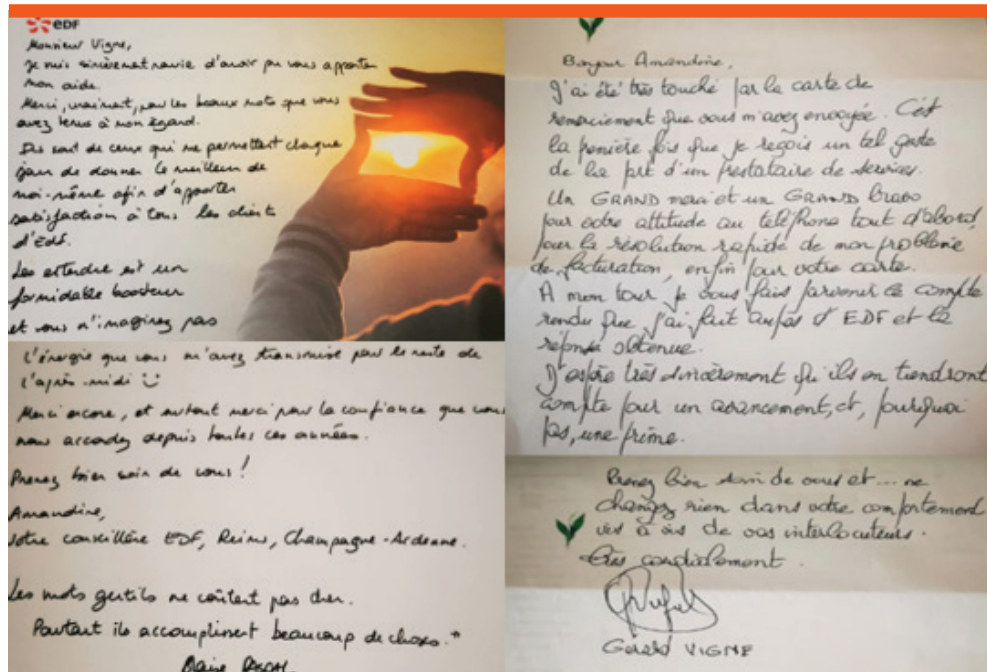 EDF
Monsieur Vigne,
Je suis sincèrement ravie d'avoir pu vous apporter
mon aide.
Merci, vraiment, pour les beaux mots que vous
avez tenus à mon égard.
Ils sont de ceux qui me permettent chaque
jour de donner le meilleur de
moi-même afin d'apporter
satisfaction à tous les clients
d'EDF.
Les entendre est un
formidable booster
et vous n'imaginez pas
l'énergie que vous m'avez transmise pour le reste de
l'après-midi
Merci encore, et surtout merci pour la confiance que vous
nous accordez depuis toutes ces années.
Prenez bien soin de vous !
Amandine,
votre conseillère EDF, Reims, Champagne-Ardenne.
Les mots gentils ne coûtent pas cher.
Pourtant ils accomplissent beaucoup de choses."
Blaise PASCAL
Bonjour Amandine,
J'ai été très touché par la carte de
remerciement que vous m'avez envoyée. C'est
la première fois que je reçois un tel geste
de la part d'un prestataire de services.
Un GRAND merci et un GRAND bravo
pour votre attitude au téléphone tout d'abord,
pour la résolution rapide de mon problème
de facturation, enfin pour votre carte.
A mon tour, je vous fais parvenir le compte
rendu que j'ai fait auprès d'EDF et la
réponse obtenue.
J'espère très sincèrement qu'ils en tiendront
compte pour un avancement, et, pourquoi
pas, une prime.
Prenez bien soin de vous et... ne
changez rien dans votre comportement
vis à vis de vos interlocuteurs.
Très cordialement.
Gérald VIGNE